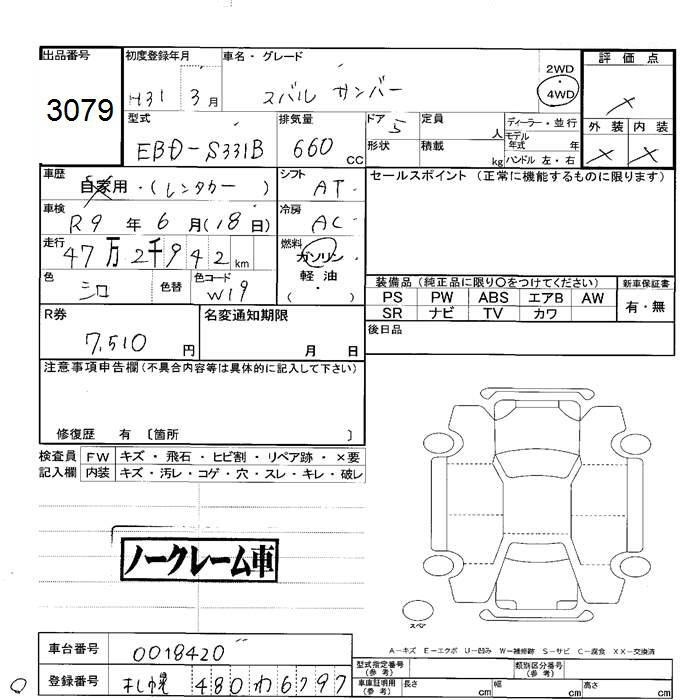 出品番号
3079
初度登録年月
H31 3月
車名・グレード
スバル サンバー
2WD
4WD
評価点
×
外装 内装
× ×
型式
EBD-S331B
排気量
660 CC
ドア 5
形状
定員 人
積載 kg
ディーラー・並行
モデル年式 年
ハンドル 左・右
車歴
自家用・(レンタカー)
シフト
AT
セールスポイント (正常に機能するものに限ります)
車検
R9 年 6 月 (18 日)
冷房
AC
走行
47万2千942 km
燃料
ガソリン
軽油
( ・ )
色
シロ
色替
色コード
W19
装備品 (純正品に限り○をつけてください)
PS PW ABS エアB AW
SR ナビ TV カワ
新車保証書
有・無
R券
7,510 円
名変通知期限
月 日
後日品
注意事項申告欄 (不具合内容等は具体的に記入して下さい)
修復歴 有 〔箇所 〕
検査員記入欄
FW キズ・飛石・ヒビ割・リペア跡・×要
内装 キズ・汚レ・コゲ・穴・スレ・キレ・破レ
ノークレーム車
スペア
A-キズ E-エクボ U-凹み W-補修跡 S-サビ C-腐食 XX-交換済
車台番号
0018420
登録番号
札幌 480 わ 6797
型式指定番号 (参考)
類別区分番号 (参考)
車庫証明用 (参考)
長さ cm 幅 cm 高さ cm